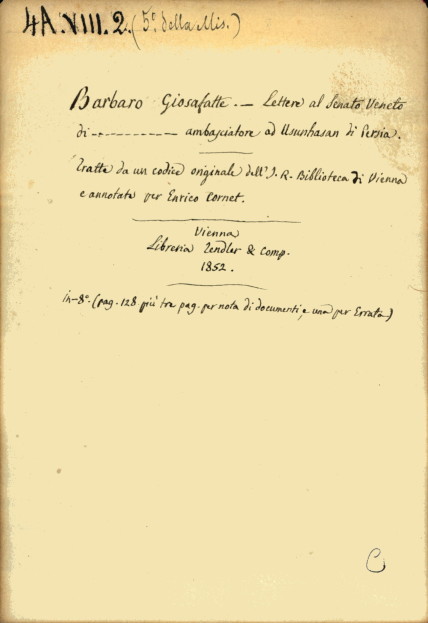 4A.VIII.2. (5ª della Mis.)
Barbaro Giosafatte. — Lettere al Senato Veneto
di ---------- ambasciatore ad Usunhasan di Persia.
Tratte da un codice originale dell'I. R. Biblioteca di Vienna
e annotate per Enrico Cornet.
Vienna
Libreria Tendler & Comp.
1852.
in-8º. (pag. 128 più tre pag. per nota di documenti, e una per Errata)
C